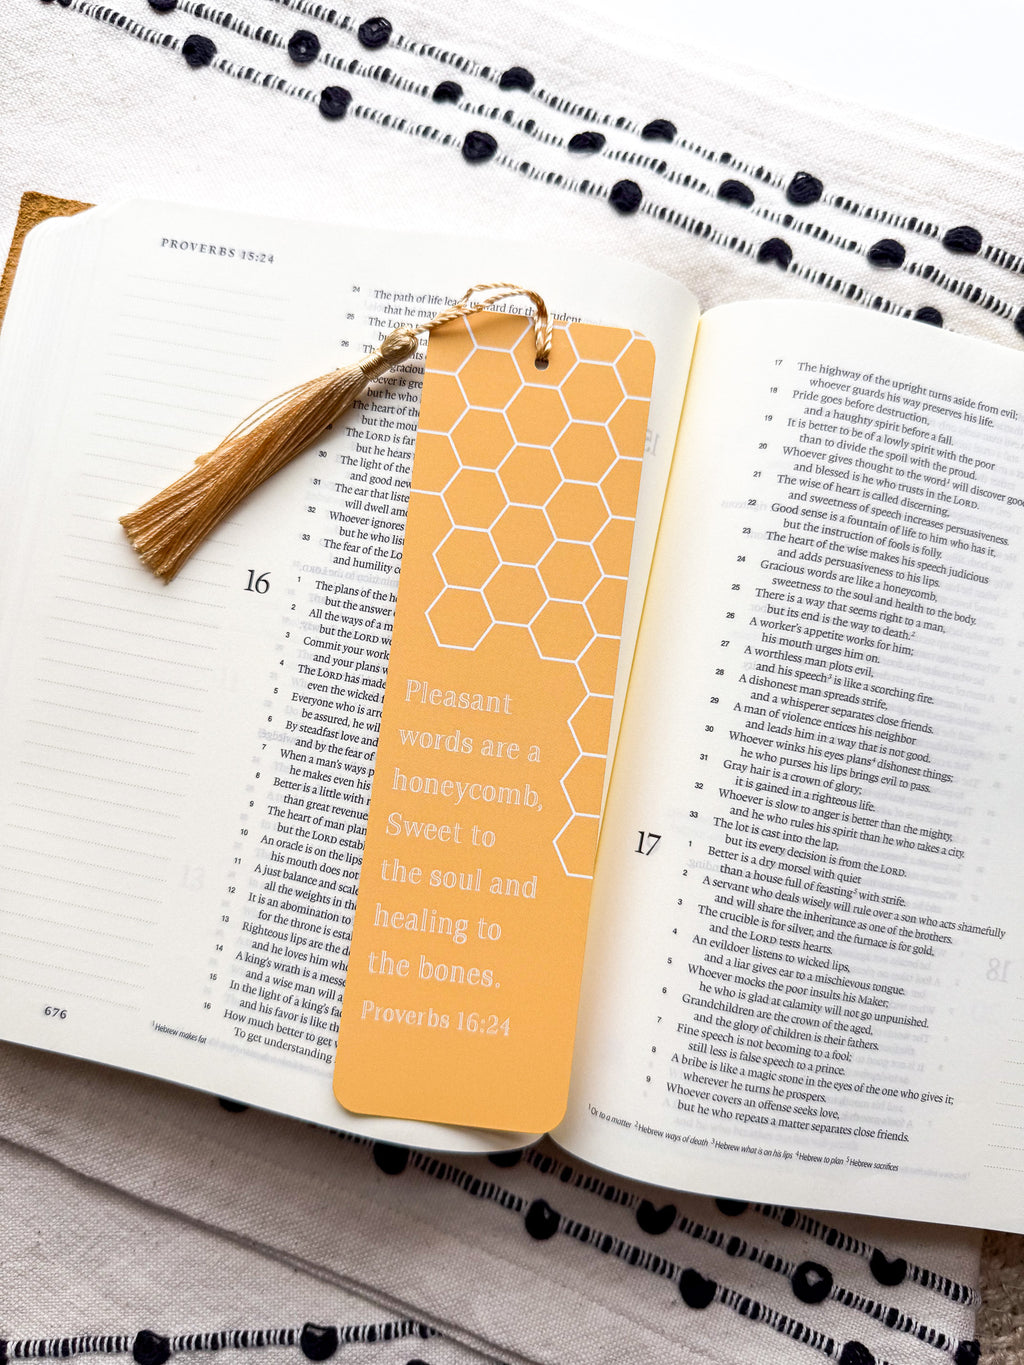 PROVERBS 15:24
24 The path of life lea ward for the prudent,
that he may
25 The LORD t
but
26
gracious
oever is gre
but he who
The heart of the
but the mou
The LORD is far
but he hears
30 The light of the
and good new
31 The ear that liste
will dwell amo
32 Whoever ignores
but he who list
33 The fear of the LO
and humility co
16
1 The plans of the he
but the answer
2 All the ways of a m
but the LORD we
3 Commit your work
and your plans w
4 The LORD has made
even the wicked f
5 Everyone who is arro
be assured, he wil
6 By steadfast love and
and by the fear of
7 When a man's ways p
he makes even his
8 Better is a little with r
than great revenue
9 The heart of man plan
but the LORD establ
10 An oracle is on the lips
his mouth does not
11 A just balance and scale
all the weights in the
12 It is an abomination to
for the throne is esta
13 Righteous lips are the d
and he loves him who
14 A king's wrath is a messe
and a wise man will a
15 In the light of a king's fa
and his favor is like th
16 How much better to get w
To get understanding
676
1 Hebrew makes fat
Pleasant
words are a
honeycomb,
Sweet to
the soul and
healing to
the bones.
Proverbs 16:24
17 The highway of the upright turns aside from evil;
whoever guards his way preserves his life.
18 Pride goes before destruction,
and a haughty spirit before a fall.
19 It is better to be of a lowly spirit with the poor
than to divide the spoil with the proud.
20 Whoever gives thought to the word¹ will discover good
and blessed is he who trusts in the LORD.
21 The wise of heart is called discerning,
and sweetness of speech increases persuasiveness.
22 Good sense is a fountain of life to him who has it,
but the instruction of fools is folly.
23 The heart of the wise makes his speech judicious
and adds persuasiveness to his lips.
24 Gracious words are like a honeycomb,
sweetness to the soul and health to the body.
25 There is a way that seems right to a man,
but its end is the way to death.²
26 A worker's appetite works for him;
his mouth urges him on.
27 A worthless man plots evil,
and his speech³ is like a scorching fire.
28 A dishonest man spreads strife,
and a whisperer separates close friends.
29 A man of violence entices his neighbor
and leads him in a way that is not good.
30 Whoever winks his eyes plans⁴ dishonest things;
he who purses his lips brings evil to pass.
31 Gray hair is a crown of glory;
it is gained in a righteous life.
32 Whoever is slow to anger is better than the mighty,
and he who rules his spirit than he who takes a city.
33 The lot is cast into the lap,
but its every decision is from the LORD.
17
1 Better is a dry morsel with quiet
than a house full of feasting⁵ with strife.
2 A servant who deals wisely will rule over a son who acts shamefully
and will share the inheritance as one of the brothers.
3 The crucible is for silver, and the furnace is for gold,
and the LORD tests hearts.
4 An evildoer listens to wicked lips,
and a liar gives ear to a mischievous tongue.
5 Whoever mocks the poor insults his Maker;
he who is glad at calamity will not go unpunished.
6 Grandchildren are the crown of the aged,
and the glory of children is their fathers.
7 Fine speech is not becoming to a fool;
still less is false speech to a prince.
8 A bribe is like a magic stone in the eyes of the one who gives it;
wherever he turns he prospers.
9 Whoever covers an offense seeks love,
but he who repeats a matter separates close friends.
1 Or to a matter 2 Hebrew ways of death 3 Hebrew what is on his lips 4 Hebrew to plan 5 Hebrew sacrifices